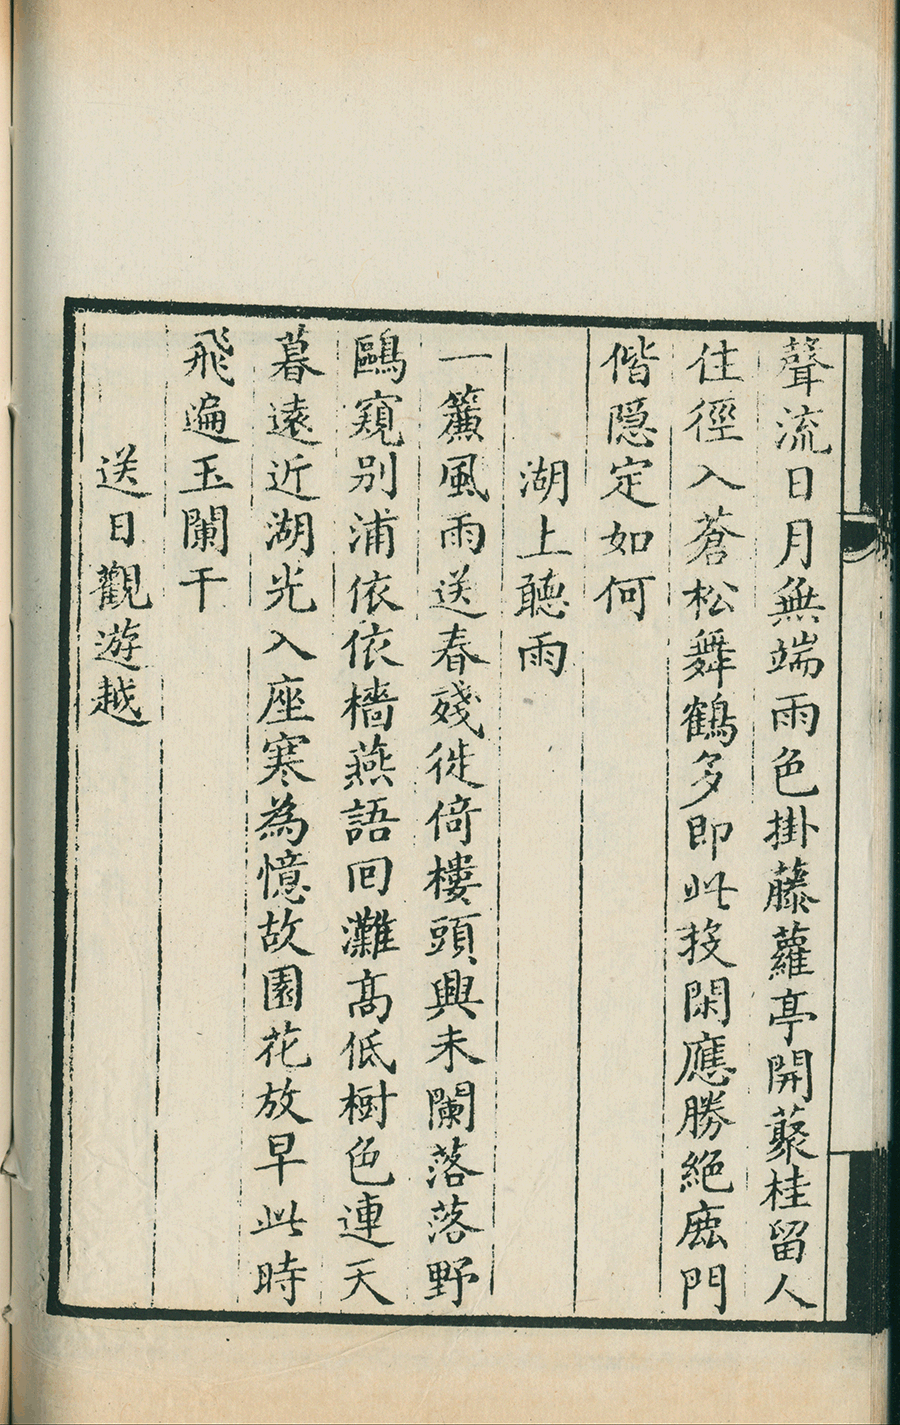 聲流日月無端雨色掛藤蘿亭開藂桂留人
住徑入蒼松舞鶴多即此投閑應勝絕鹿門
偕隠定如何
湖上聽雨
一簾風雨送春殘徙倚樓頭興未闌落落野
鷗窺別浦依依檣燕語回灘髙低樹色連天
暮遠近湖光入座寒為憶故園花放早此時
飛遍玉闌干
送日觀遊越